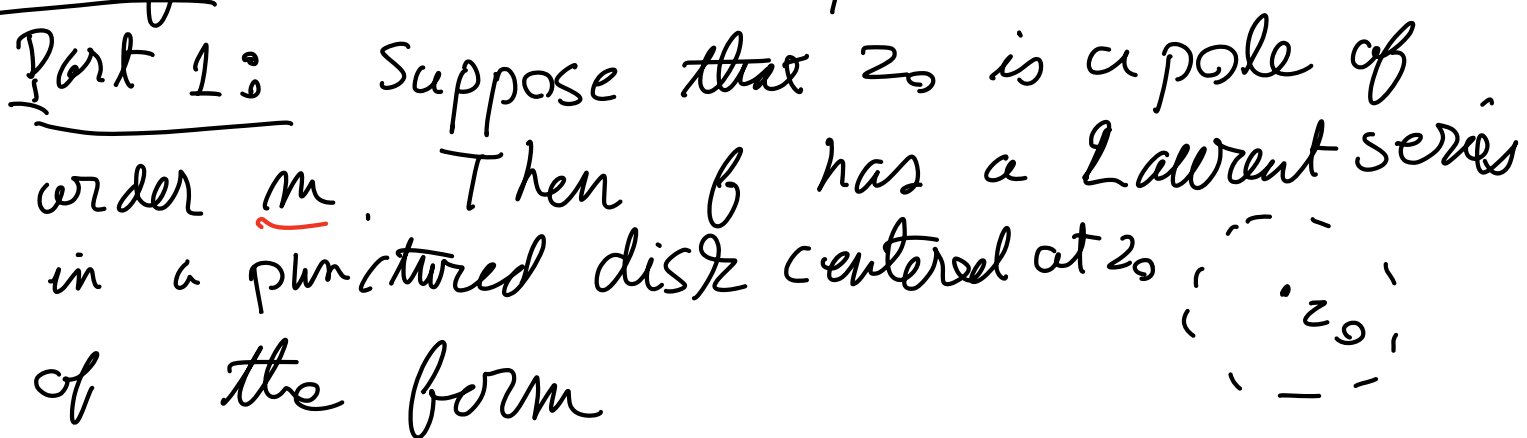 Part 1: Suppose that z₀ is a pole of
order m. Then f has a Laurent series
in a punctured disk centered at z₀
z₀
of the form